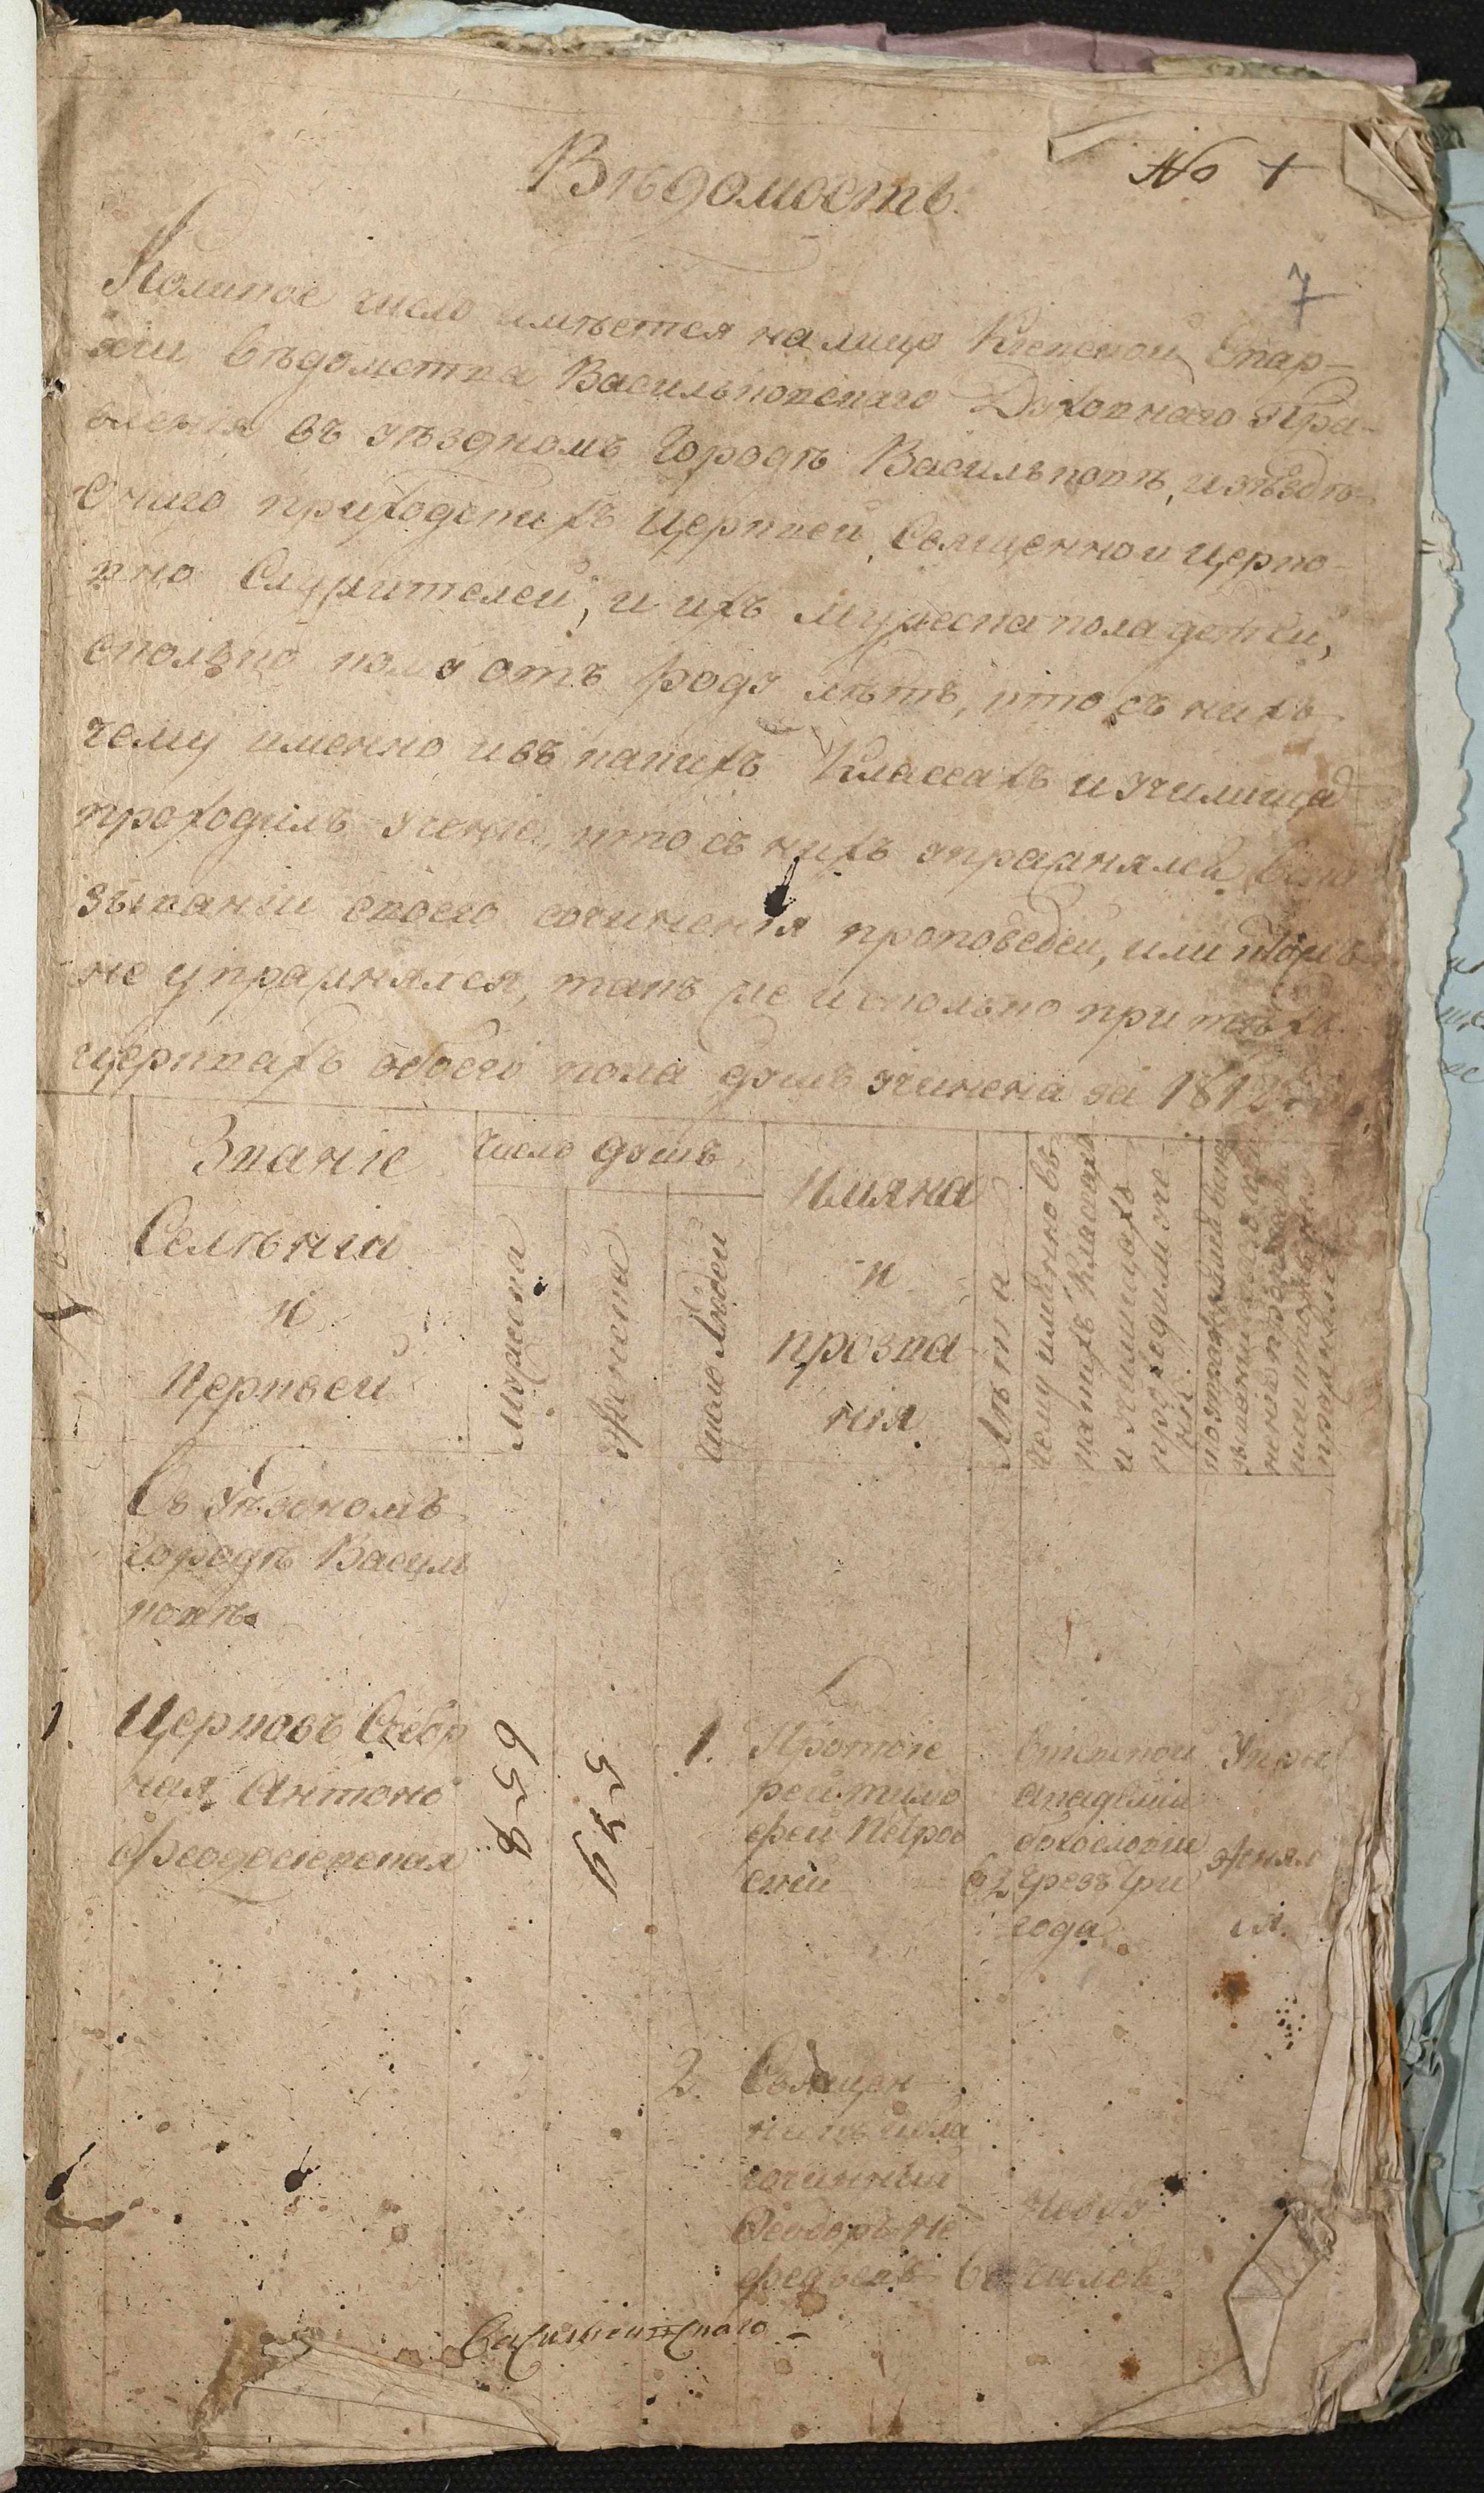 № 1
Вѣдомость.
7
Коликое число имѣется на лицо Кіевской Епар-
хіи вѣдомства Васильковскаго Духовнаго Пра-
вленія въ уѣздномъ Городѣ Васильковѣ, и уѣздѣ
онаго приходскихъ Церквей, Священно и церко-
вно служителей, и ихъ мужеска пола детей,
сколько кому отъ роду лѣтъ, кто съ нихъ
чему именно и въ какихъ Классахъ и училищах
проходилъ учение, кто съ нихъ упражнялся
зываніи своего сочиненія проповѣдей, или
не упражнялся, такъ же и сколько при тѣхъ
церквахъ обоего пола душъ учинена за 1812
Званіе
Селѣнія
и
Церквей
Число душъ
Мужеска
Женска
число людей
Имяна
и
прозва
нія
Лѣта
чему имянно въ
какихъ Класахъ
и училищахъ
проходили уче
ніи
Въ Уѣзномъ
городѣ Василь
ковѣ
1. Церковь Собор
ная Антоно
Феодосіевская
658
554
1. Протоіе
рей Тимо
фей Петров
скій
62
в кіевской
академіи
богословіи
чрезъ три
года
Упраж
нял
ся.
2. Священ
никъ и бла
гочинный
Феодоръ Не
федьевъ
Небу
Васильковскаго